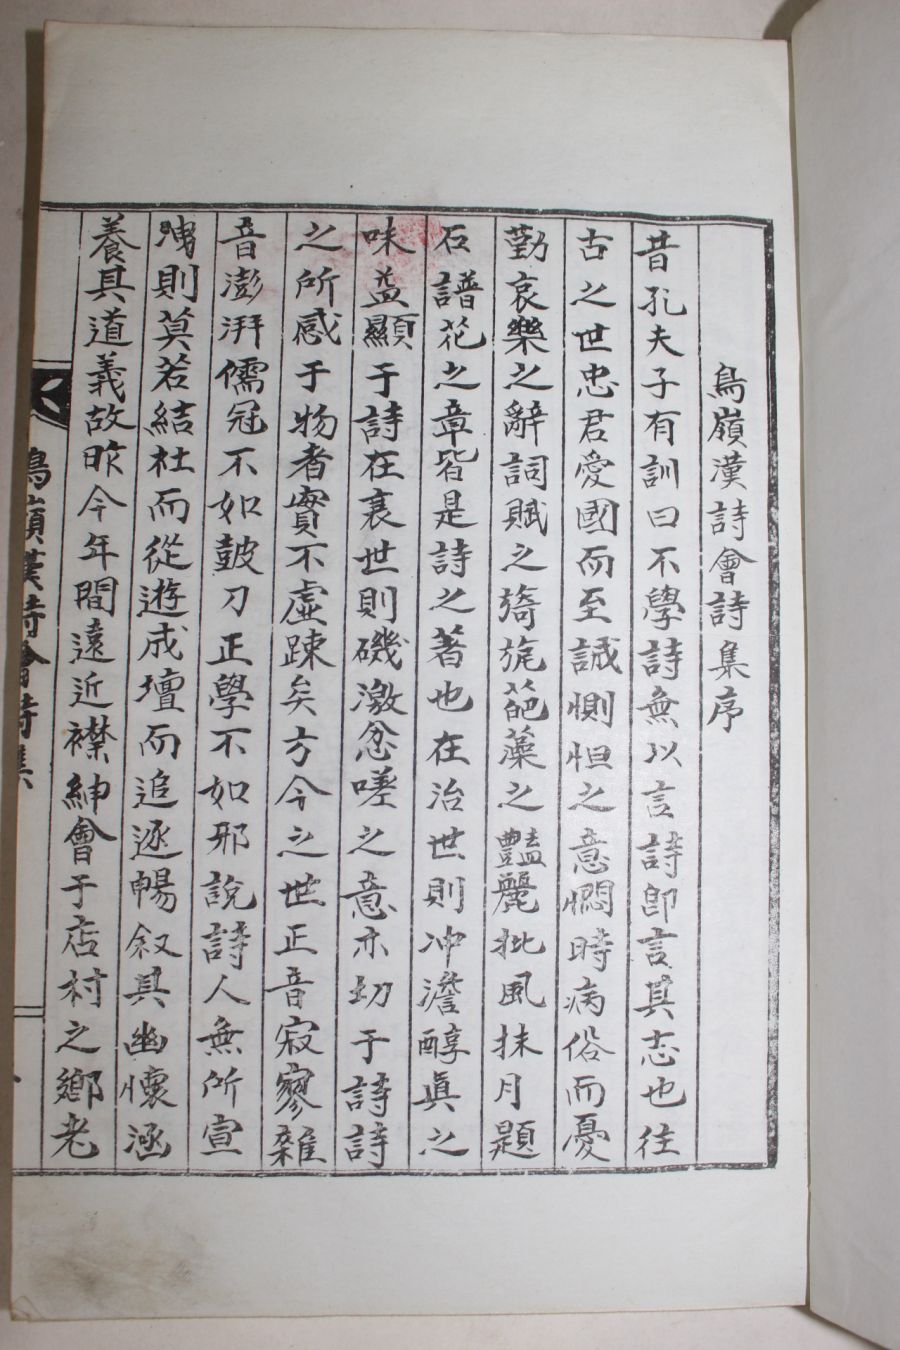 鳥嶺漢詩會詩集序
昔孔夫子有訓曰不學詩無以言詩卽言其志也往
古之世忠君愛國而至誠惻怛之意憫時病俗而憂
勤哀樂之辭詞賦之旖旎葩藻之豔麗批風抹月題
石譜花之章皆是詩之著也在治世則冲澹醇眞之
味益顯于詩在衰世則磯激忿嗟之意亦切于詩詩
之所感于物者實不虛踈矣方今之世正音寂寥雜
音澎湃儒冠不如皷刀正學不如邪說詩人無所宣
洩則莫若結社而從遊成壇而追逐暢叙其幽懷涵
養其道義故昨今年間遠近襟紳會于店村之鄉老
鳥嶺漢詩會詩集